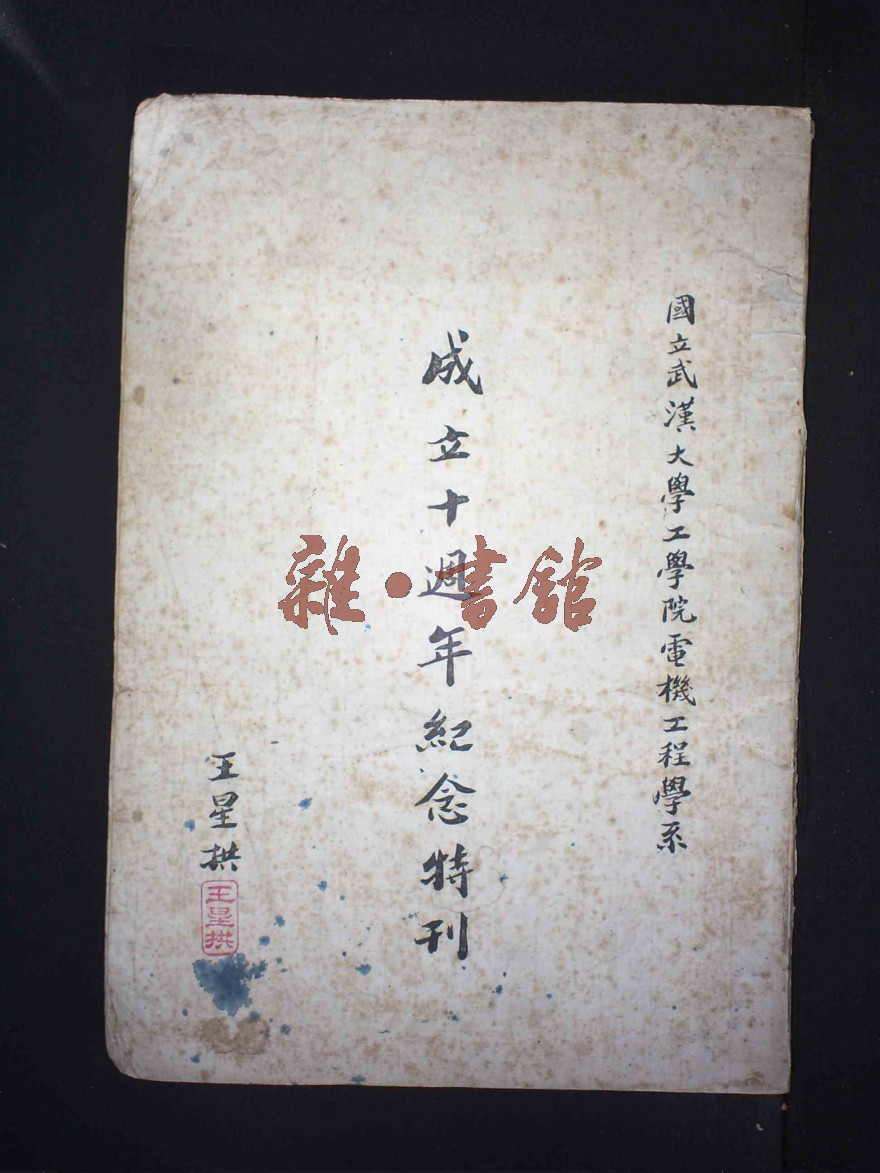 國立武漢大學工學院電機工程學系
成立十週年紀念特刊
王星拱
王星拱
雜·書館